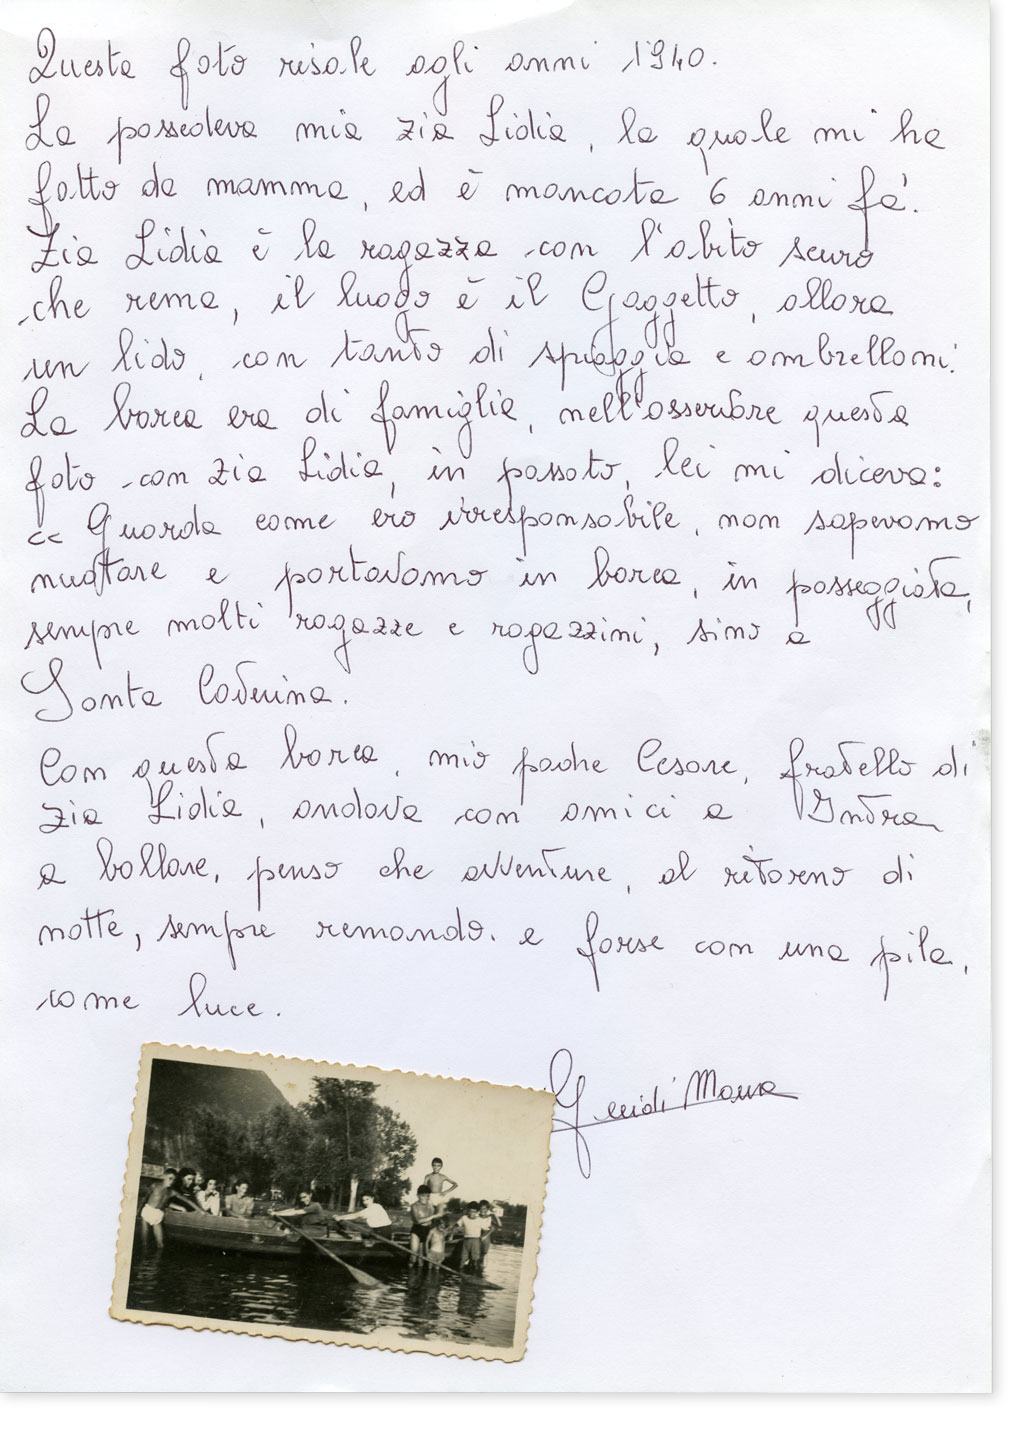 Questa foto risale agli anni 1940.
La possedeva mia zia Lidia, la quale mi ha
fatto da mamma, ed è mancata 6 anni fà.
Zia Lidia è la ragazza con l'abito scuro
che rema, il luogo è il Gaggetto, allora
un lido, con tanto di spiaggia e ombrelloni.
La barca era di famiglia, nell'osservare questa
foto con zia Lidia, in passato, lei mi diceva:
<< Guarda come ero irresponsabile, non sapevamo
nuotare e portavamo in barca, in passeggiata,
sempre molti ragazze e ragazzini, sino a
Santa Caterina.
Con questa barca, mio padre Cesare, fratello di
zia Lidia, andava con amici a Intra
a ballare, penso che avventure, al ritorno di
notte, sempre remando. e forse con una pila,
come luce.
Guidi Mara